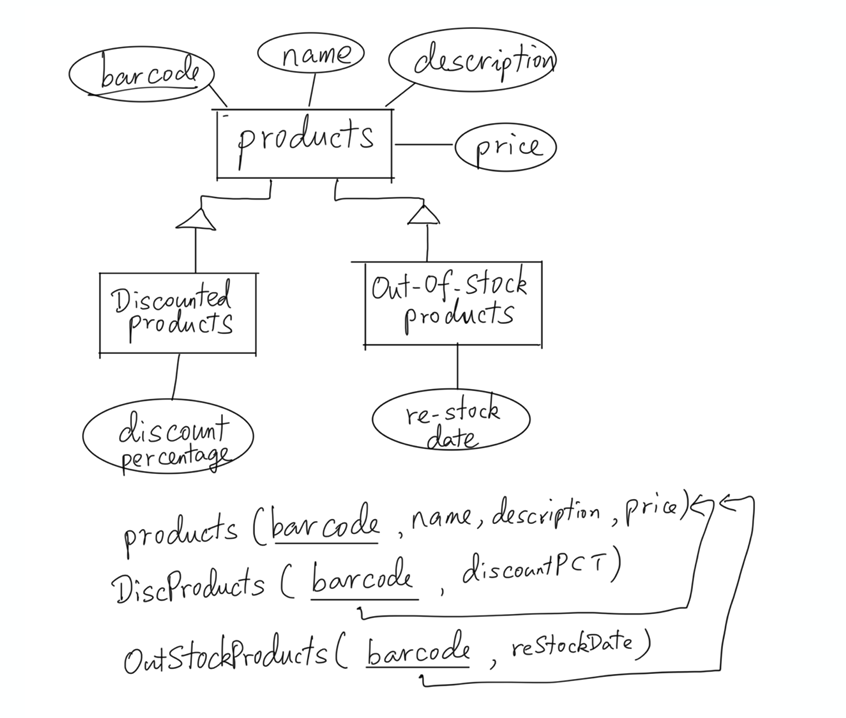 name
description
barcode
products
price
Discounted
products
Out-Of-stock
products
discount
percentage
re-stock
date
products (barcode, name, description, price)
DiscProducts (barcode, discountPCT)
OutStockProducts (barcode, reStockDate)